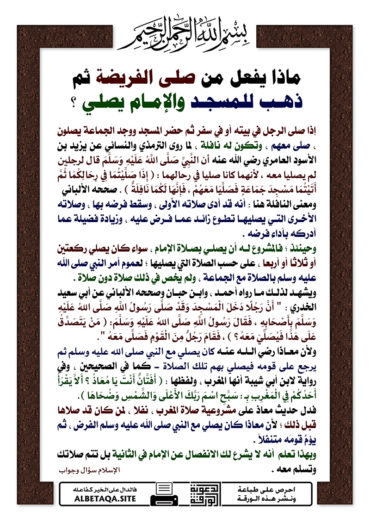 بِسْمِ اللَّهِ الرَّحْمَنِ الرَّحِيمِ
ماذا يفعل من صلى الفريضة ثم
ذهـب للمسجـد والإمـام يصلي ؟
إذا صلى الرجل في بيته أو في سفر ثم حضر المسجد ووجد الجماعة يصلون
، صلى معهم ، وتكون له نافلة ، لما روى الترمذي والنسائي عن يزيد بن
الأسود العامري رضي الله عنه أن النَّبِيَّ صَلَّى اللَّهُ عَلَيْهِ وَسَلَّمَ قال لرجلين
لم يصليا معه ، لأنهما كانا صليا في رحالهما : ( إِذَا صَلَّيْتُمَا فِي رِحَالِكُمَا ثُمَّ
أَتَيْتُمَا مَسْجِدَ جَمَاعَةٍ فَصَلِّيَا مَعَهُمْ ، فَإِنَّهَا لَكُمَا نَافِلَةٌ ) . صححه الألباني
ومعنى النافلة هنا : أنه قد أدى صلاته الأولى ، وسقط فرضه بها ، وصلاته
الأخرى التي يصليهـا تطـوع زائـد عمـا فـرض عليه ، وزيادة فضيلة عما
أدركه بأداء فرضه .
وحينئذ ؛ فالمشروع لـه أن يصلـي بصـلاة الإمام ، سواء كان يصلي ركعتين
أو ثلاثا أو أربعا ، على حسب الصلاة التي يصليها ؛ لعموم أمر النبي صلى الله
عليه وسلم بالصلاة مع الجماعة ، ولم يخص في ذلك صلاة دون صلاة .
ويشهـد لذلـك مـا رواه أحمـد ، وابـن حبـان وصححه الألباني عن أبي سعيد
الخدري : " أَنَّ رَجُلًا دَخَلَ الْمَسْجِدَ وَقَدْ صَلَّى رَسُولُ اللَّهِ صَلَّى اللَّهُ عَلَيْهِ
وَسَلَّمَ بِأَصْحَابِهِ ، فَقَالَ رَسُولُ اللَّهِ صَلَّى اللَّهُ عَلَيْهِ وَسَلَّمَ: ( مَنْ يَتَصَدَّقُ
عَلَى هَذَا فَيُصَلِّيَ مَعَهُ؟ ) ، فَقَامَ رَجُلٌ مِنَ الْقَوْمِ فَصَلَّى مَعَهُ " .
ولأن معـاذا رضي اللـه عنـه كان يصلي مع النبي صلى الله عليه وسلم ثم
يرجع على قومه فيصلي بهم تلك الصلاة – كما في الصحيحين ، وفي
رواية لابن أبي شيبة أنها المغرب ، ولفظها : ( أَفَتَّانٌ أَنْتَ يَا مُعَاذُ ؟ أَلَا يَقْرَأُ
أَحَدُكُمْ فِي الْمَغْرِبِ بِـ: سَبِّحِ اسْمَ رَبِّكَ الْأَعْلَى وَالشَّمْسِ وَضُحَاهَا ) .
فدل حديث معاذ على مشروعية صلاة المغرب ، نفلا ، لمن كان قد صلاها
قبل ذلك ؛ لأن معاذا كان يصلي مع النبي صلى الله عليه وسلم الفرض ، ثم
يؤم قومه متنفلا .
وبهذا تعلم أنه لا يشرع لك الانفصال عن الإمام في الثانية بل تتم صلاتك
وتسلم معه .
الإسلام سؤال وجواب
احرص على طباعة
ونشـر هـذه الورقـة
الدعوية
الورقة
فالدال على الخير كفاعله
ALBETAQA.SITE